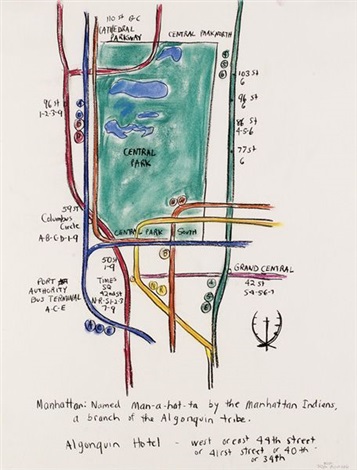 110 St B-C
CATHEDRAL
PARKWAY
CENTRAL PARK NORTH
103 St
6
96 St
6
96 St
1-2-3-9
86 St
4-5-6
77 St
6
CENTRAL
PARK
59 St
Columbus
Circle
A-B-C-D-1-9
CENTRAL PARK SOUTH
50 St
1-9
GRAND CENTRAL
42 St
S-4-5-6-7
PORT
AUTHORITY
BUS TERMINAL
A-C-E
TIMES
SQ
42nd St
N-R-S-1-2-3
7-9
Manhattan: Named Man-a-hat-ta by the Manhattan Indians,
a branch of the Algonquin tribe.
Algonquin Hotel - west or east 44th street
or 41rst street or 40th
or 34th